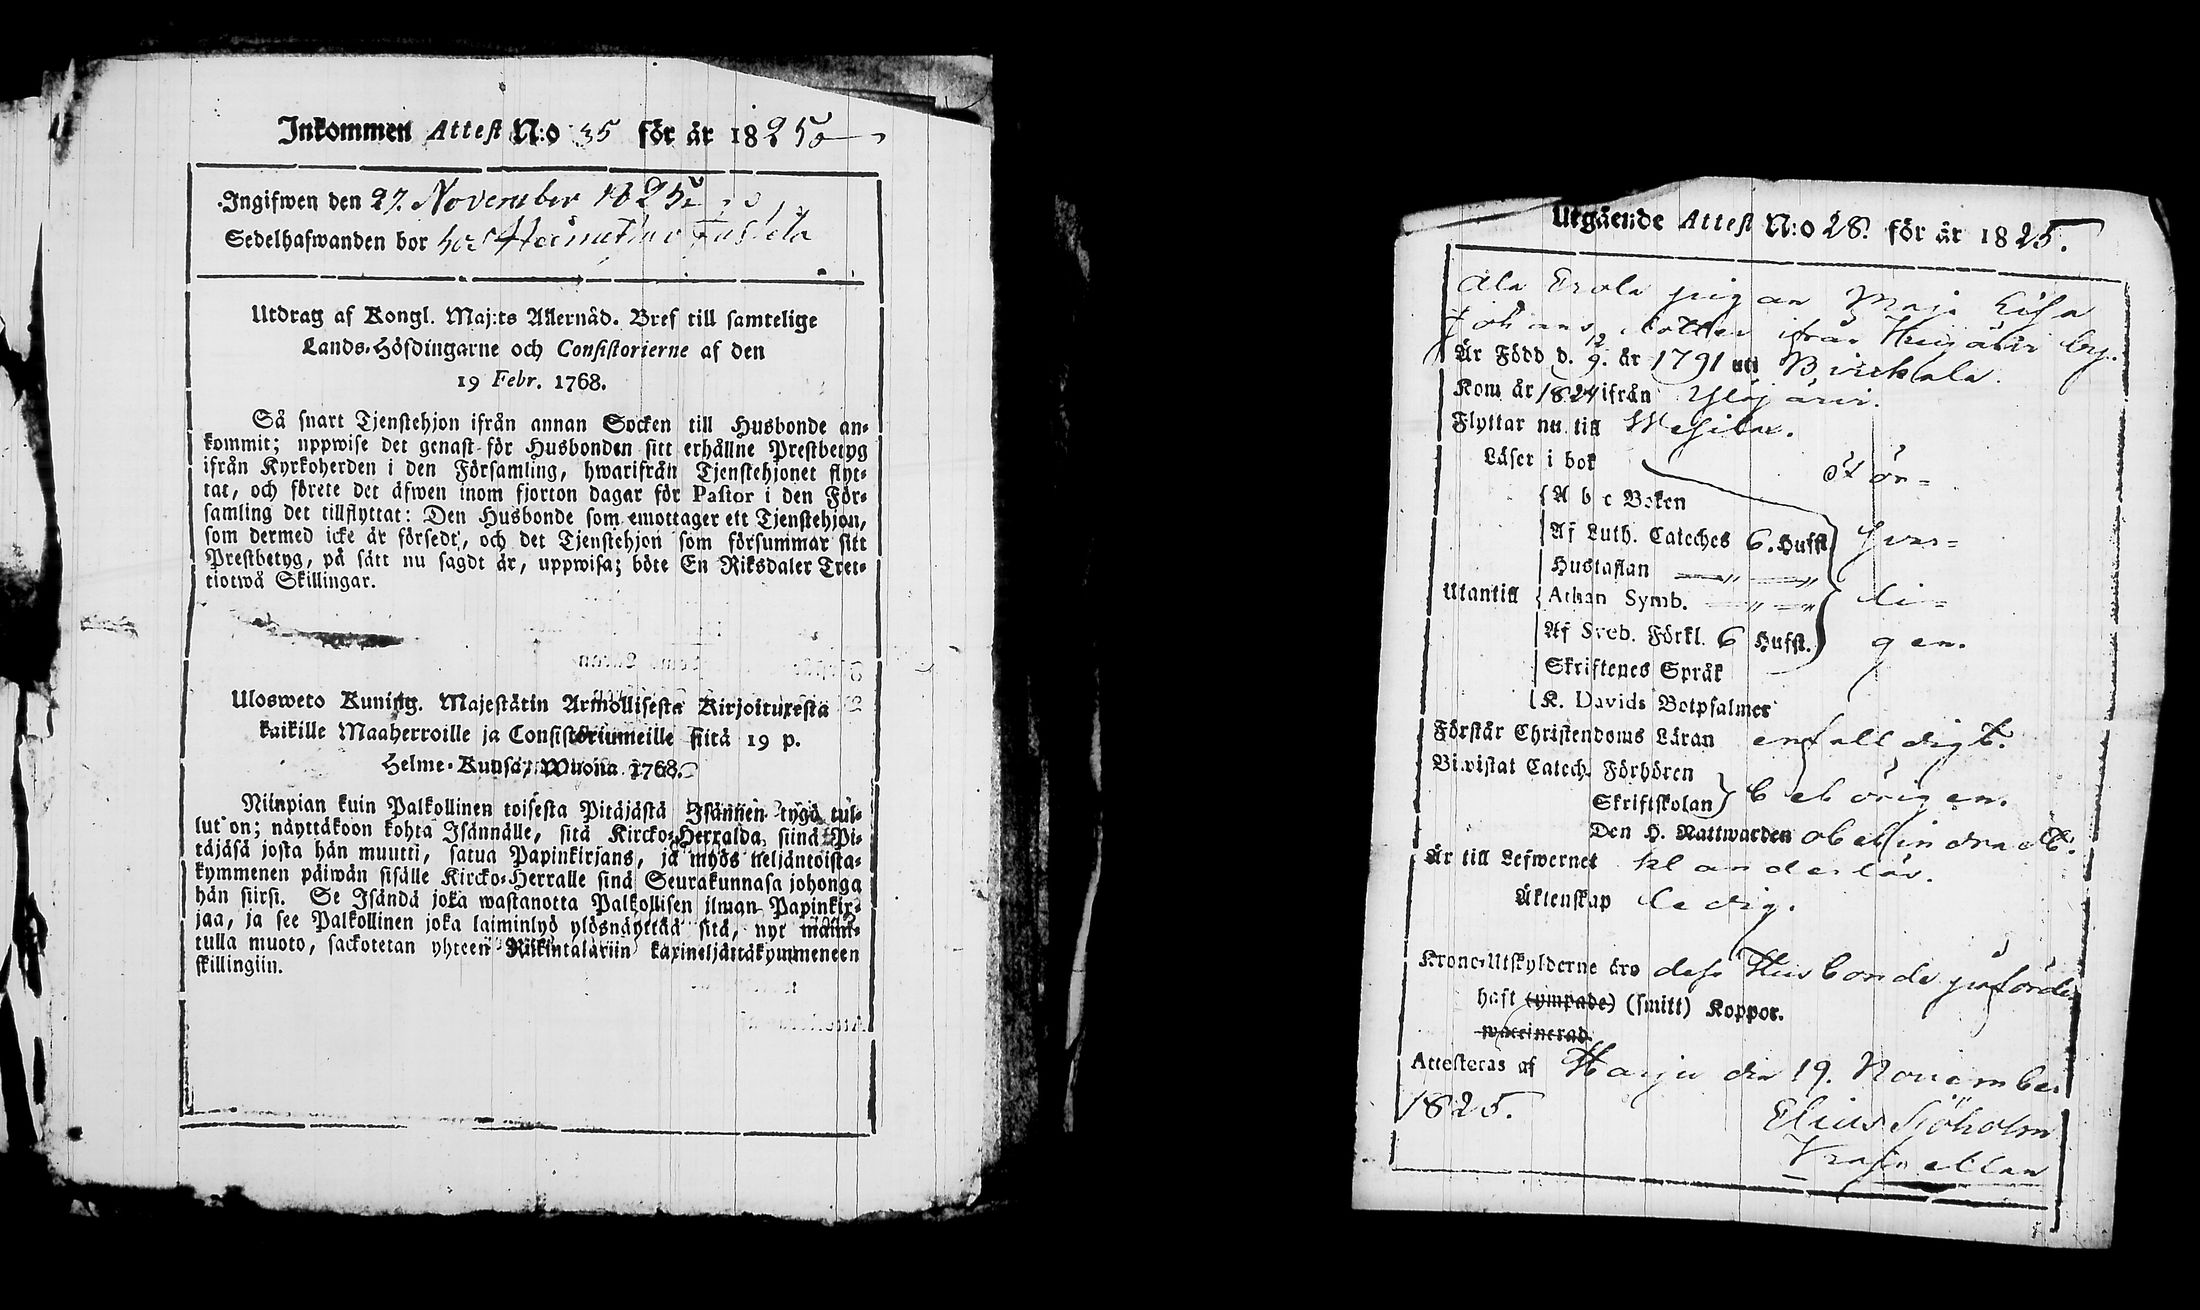 Inkommen Attest N:o 35 för år 1825
Ingifwen den 27. November 1825
Sedelhafwanden bor hos
Utdrag af Kongl. Maj:ts Allernåd. Bref till samtelige
Lands-Höfdingarne och Consistorierne af den
19 Febr. 1768.
Så snart Tjenstehjon ifrån annan Socken till Husbonde an-
kommit; uppwise det genast för Husbonden sitt erhållne Prestbetyg
ifrån Kyrkoherden i den Församling, hwarifrån Tjenstehjonet flyt-
tat, och förete det äfwen inom fjorton dagar för Pastor i den För-
samling det tillflyttat: Den Husbonde som emottager ett Tjenstehjon,
som dermed icke är försedt, och det Tjenstehjon som försummar sitt
Prestbetyg, på sätt nu sagdt är, uppwisa; böte En Riksdaler Tret-
tiotwå Skillingar.
Ulosweto Kuning. Majestätin Armollisesta Kirjoituxesta
kaikille Maaherroille ja Consistoriumeille siitä 19 p.
Helme-Kuusa, Wuona 1768.
Niinpian kuin Palkollinen toisesta Pitäjästä Isännen tygö tul-
lut on; näyttäkoon kohta Isännälle, sitä Kircko-Herralda, siinä Pi-
täjäsä josta hän muutti, satua Papinkirjans, ja myös neljäntoista-
kymmenen päiwän sisälle Kircko-Herralle sinä Seurakunnasa johonga
hän siirsi. Se Isändä joka wastanotta Palkollisen ilman Papinkir-
jaa, ja see Palkollinen joka laiminlyö ylösnäyttää sitä, nyt mainit-
tulla muoto, sackotetan yhteen Riikintalariin kaxineljättäkymmeneen
skillingiin.
Utgående Attest N:o 28. för år 1825.
Ala Erola pigan Maja Lisa
Johans dotter ifrån by.
Är Född d. 12/9. år 1791 uti Birckala.
Kom år 1824 ifrån Ylöjärvi.
Flyttar nu till Wesilax.
Läser i bok För=
A b c Boken
Af Luth. Cateches 6. Hufst. svar=
Hustaflan — " — "
Utantill Athan Symb. — " — " li=
Af Sveb. Förkl. 6 Hufst. gen.
Skriftenes Språk
K. Davids Botpsalmer
Förstår Christendoms Läran enfalldigt.
Biwistat Catech. Förhören
Skriftskolan behörigen.
Den H. Nattwarden obehindradt.
Är till Lefwernet klanderlös.
Äktenskap ledig.
Krono-Utskylderne äro dess Husbonde påförde
haft (ympade) (smitt) Koppor.
waccinerad.
Attesteras af Harju den 19. November
1825. Elias Sjöholm